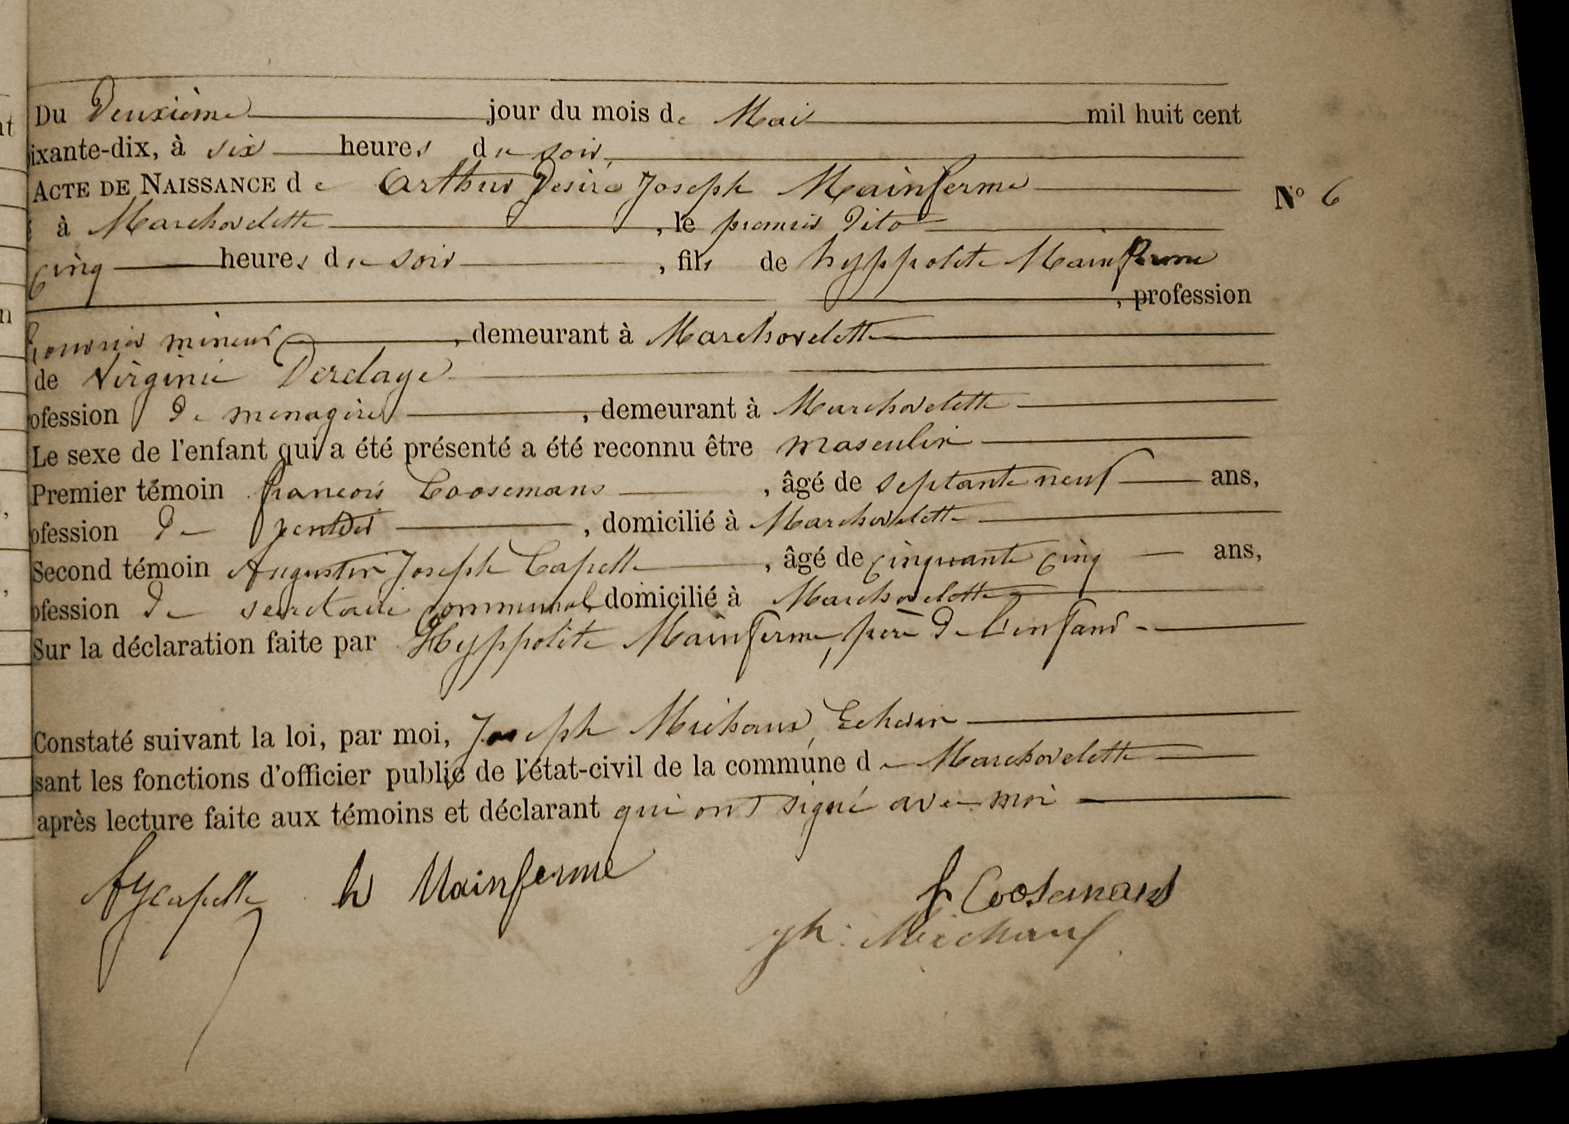 Du Deuxième jour du mois de Mai mil huit cent
ixante-dix, à six heures du soir,
ACTE DE NAISSANCE de Arthur Desiré Joseph Mainferme
N° 6
à Marchovelette, le premier dito
cinq heures du soir, fils de hyppolite Mainferme
, profession
ouvrier mineur, demeurant à Marchovelette
de Virginie Derclaye
ofession de menagère, demeurant à Marchovelette
Le sexe de l'enfant qui a été présenté a été reconnu être masculin
Premier témoin françois Coosemans, âgé de septante neuf ans,
ofession de, domicilié à Marchovelette
Second témoin Augustin Joseph Capelle, âgé de cinquante cinq ans,
ofession de secretaire communal domicilié à Marchovelette
Sur la déclaration faite par Hyppolite Mainferme, père de l'enfant
Constaté suivant la loi, par moi, Joseph Michaux, Echevin
sant les fonctions d'officier public de l'état-civil de la commune de Marchovelette
après lecture faite aux témoins et déclarant qui ont signé avec moi
AJCapelle h Mainferme f Coosemans
jh: Michaux